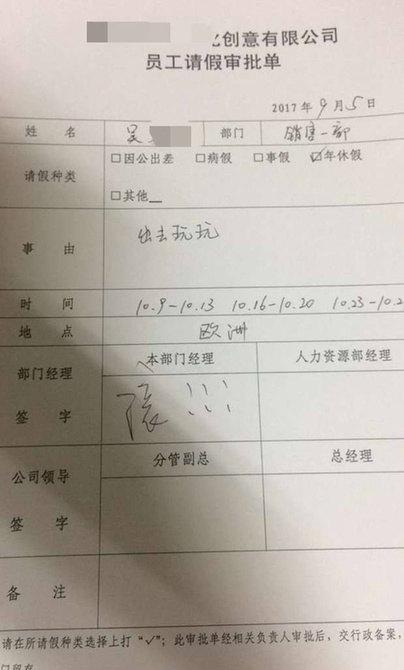 创意有限公司
员工请假审批单
2017年9月5日
姓名 吴 部门 销售一部
请假种类 □因公出差 □病假 □事假 ☑年休假
□其他__
事由 出去玩玩
时间 10.9-10.13 10.16-10.20 10.23-10.2
地点 欧洲
部门经理 本部门经理 人力资源部经理
签字 张!!!
公司领导 分管副总 总经理
签字
备注
请在所请假种类选择上打“✓”；此审批单经相关负责人审批后，交行政备案，
门留存